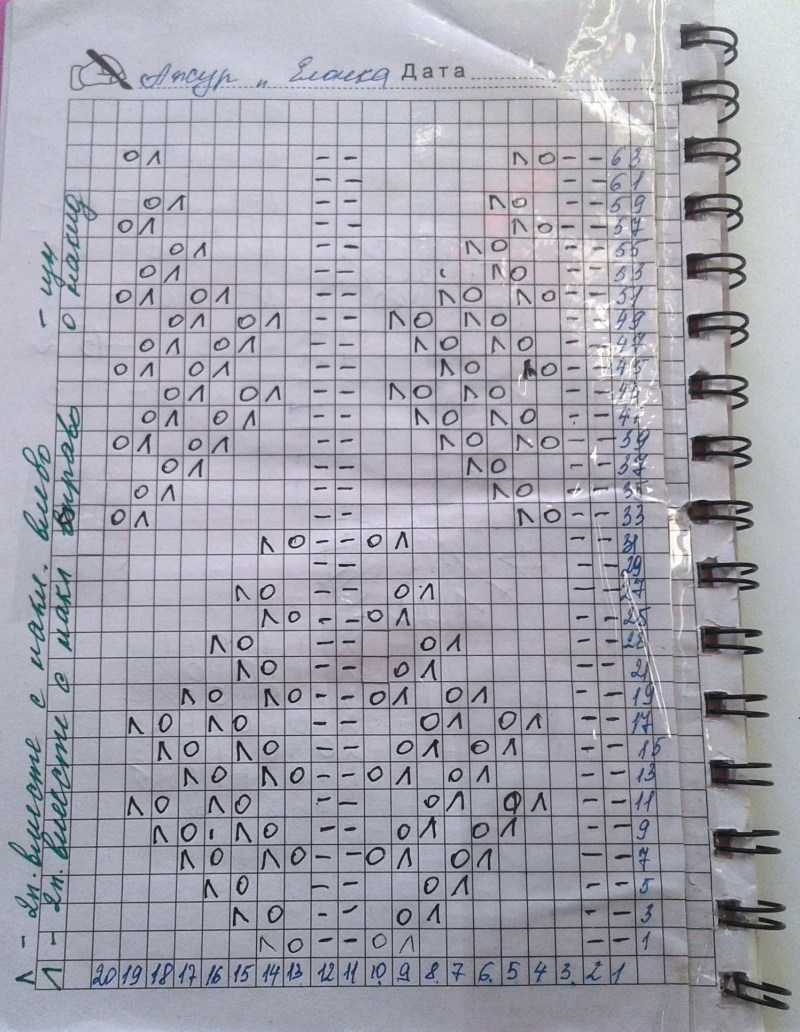 Ажур и Елочка Дата
O Λ - - Λ O - - 63
- - - - 61
O Λ - - Λ O - - 59
O Λ - - Λ O - - 57
O Λ - - Λ O - - 55
O Λ - - Λ O - - 53
O Λ O Λ - - Λ O Λ O - - 51
O Λ O Λ - - Λ O Λ O - - 49
O Λ O Λ - - Λ O Λ O - - 47
O Λ O Λ - - Λ O Λ O - - 45
O Λ O Λ - - Λ O Λ O - - 43
O Λ O Λ - - Λ O Λ O - - 41
O Λ O Λ - - Λ O Λ O - - 39
O Λ - - Λ O - - 37
O Λ - - Λ O - - 35
O Λ - - Λ O - - 33
Λ O - - O Λ - - 31
- - - - 29
Λ O - - O Λ - - 27
Λ O - - O Λ - - 25
Λ O - - O Λ - - 23
Λ O - - O Λ - - 21
Λ O Λ O - - O Λ O Λ - - 19
Λ O Λ O - - O Λ O Λ - - 17
Λ O Λ O - - O Λ O Λ - - 15
Λ O Λ O - - O Λ O Λ - - 13
Λ O Λ O - - O Λ O Λ - - 11
Λ O Λ O - - O Λ O Λ - - 9
Λ O Λ O - - O Λ O Λ - - 7
Λ O - - O Λ - - 5
Λ O - - O Λ - - 3
Λ O - - O Λ - - 1
20 19 18 17 16 15 14 13 12 11 10 9 8 7 6 5 4 3 2 1
Λ - 2п. вместе с накл. влево
Λ - 2п. вместе с накл вправо
O накид